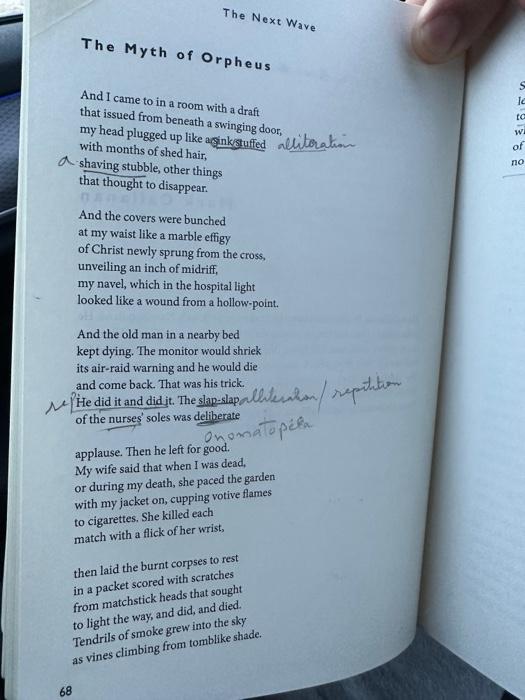 The Next Wave
The Myth of Orpheus
And I came to in a room with a draft
that issued from beneath a swinging door,
my head plugged up like a sink stuffed alliteration
with months of shed hair,
a shaving stubble, other things
that thought to disappear.
And the covers were bunched
at my waist like a marble effigy
of Christ newly sprung from the cross,
unveiling an inch of midriff,
my navel, which in the hospital light
looked like a wound from a hollow-point.
And the old man in a nearby bed
kept dying. The monitor would shriek
its air-raid warning and he would die
and come back. That was his trick.
rep He did it and did it. The slap-slap alliteration / repetition
of the nurses' soles was deliberate
onomatopéia
applause. Then he left for good.
My wife said that when I was dead,
or during my death, she paced the garden
with my jacket on, cupping votive flames
to cigarettes. She killed each
match with a flick of her wrist,
then laid the burnt corpses to rest
in a packet scored with scratches
from matchstick heads that sought
to light the way, and did, and died.
Tendrils of smoke grew into the sky
as vines climbing from tomblike shade.
68
to
of
no